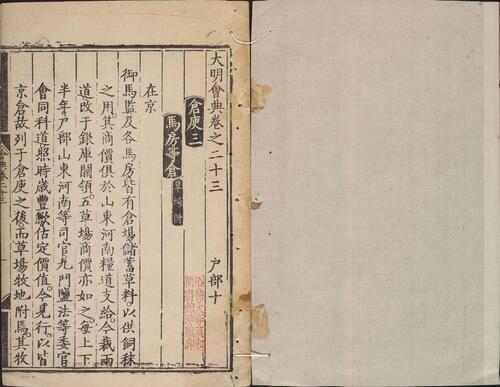 大明會典卷之二十三
戶部十
倉庾三
馬房等倉
在京
御馬監及各馬房皆有倉場儲蓄草料以供飼秣
之用其商價俱於山東河南糧道支給今裁兩
道改于銀庫關領五草場商價亦如之每上下
半年戶部山東河南等司官九門鹽法等委官
會同科道照時歲豐歉估定價值今見行以皆
京倉故列于倉庾之後而草場牧地附焉其牧